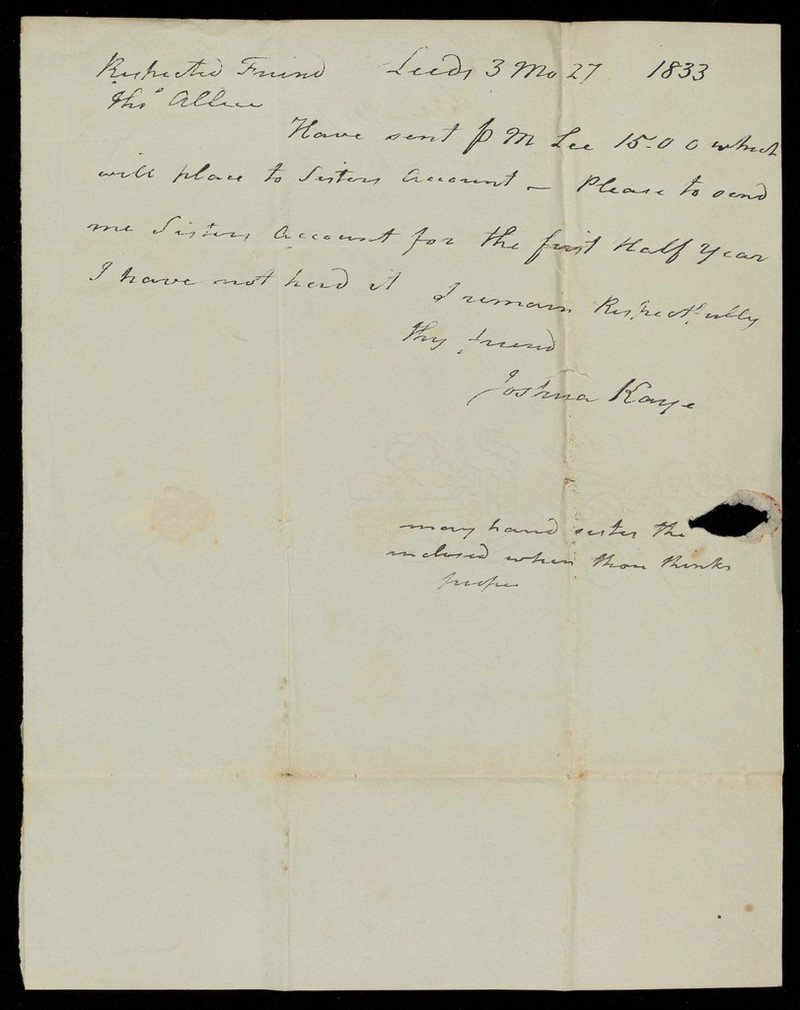 Respected Friend Leeds 3 Mo 27 1833
Thos Allis
Have sent p M Lee 15.0 0 which
will place to Sisters account - Please to send
me Sisters account for the first Half Year
I have not had it I remain Respectfully
thy friend
Joshua Kaye
may hand sister the
inclosed when thou thinks
proper